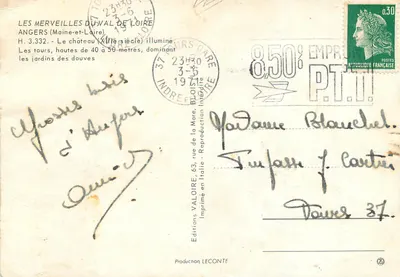 LES MERVEILLES DU VAL DE LOIRE
ANGERS (Maine-et-Loire)
H. 3.332. - Le château (XIIIe siècle) illuminé.
Les tours, hautes de 40 à 50 mètres, dominent
les jardins des douves
37 TOURS GARE
23H30
3-5
1971
INDRE ET LOIRE
8,50%
EMPRUNT
P.T.T.
0,30
REPUBLIQUE FRANÇAISE
Grosses bises
d'Angers
Editions VALOIRE, 63, rue de la Mare, BLOIS
Imprimé en Italie - Reproduction Interdite
Madame Blanchet
Impasse J. Cartier
Tours 37.
Production LECONTE